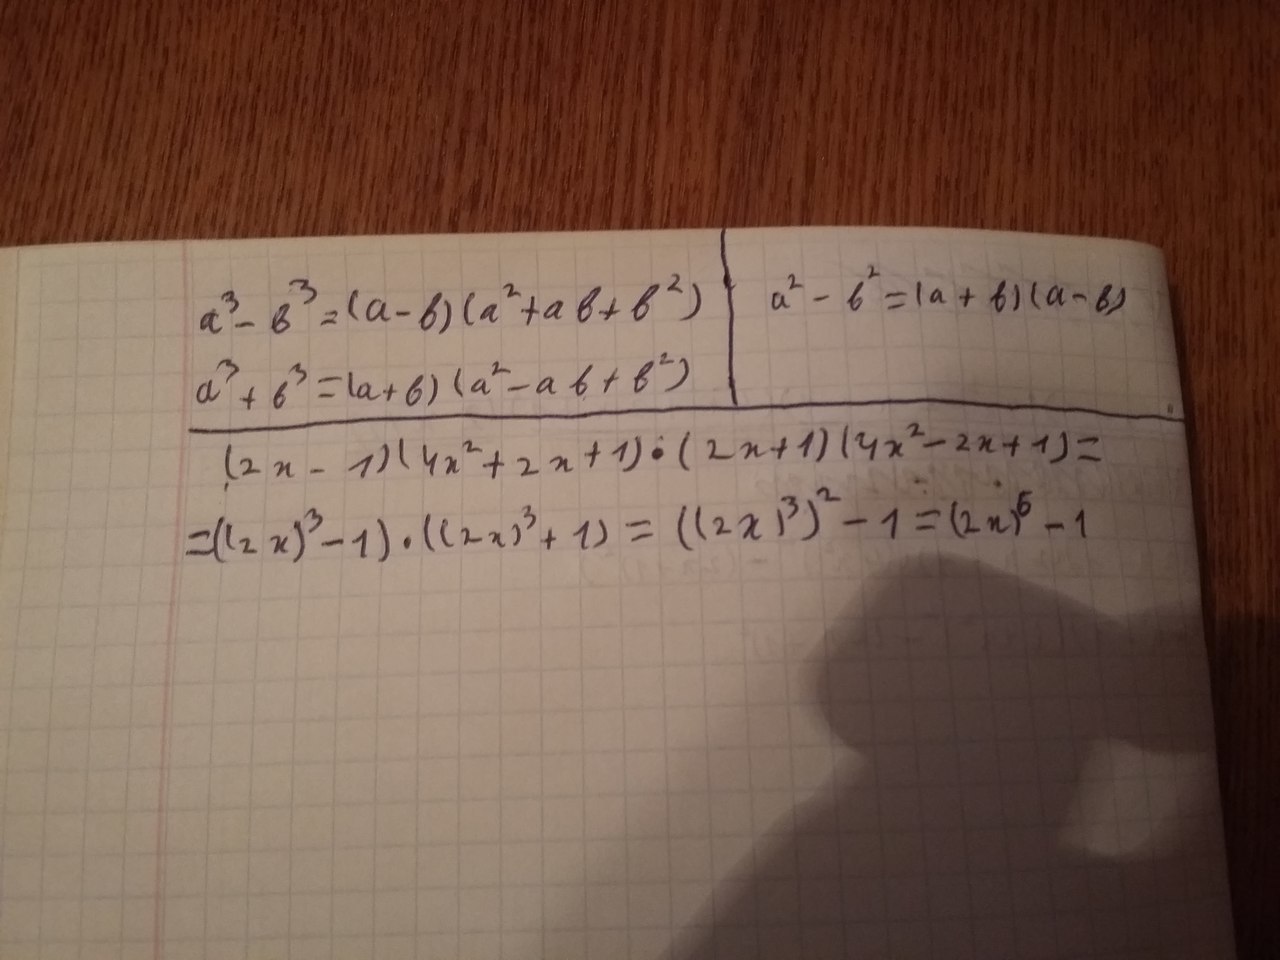 a³ - b³ = (a - b)(a² + ab + b²)
a³ + b³ = (a + b)(a² - ab + b²)
a² - b² = (a + b)(a - b)
(2x - 1)(4x² + 2x + 1) · (2x + 1)(4x² - 2x + 1) =
= ((2x)³ - 1) · ((2x)³ + 1) = ((2x)³)² - 1 = (2x)⁶ - 1